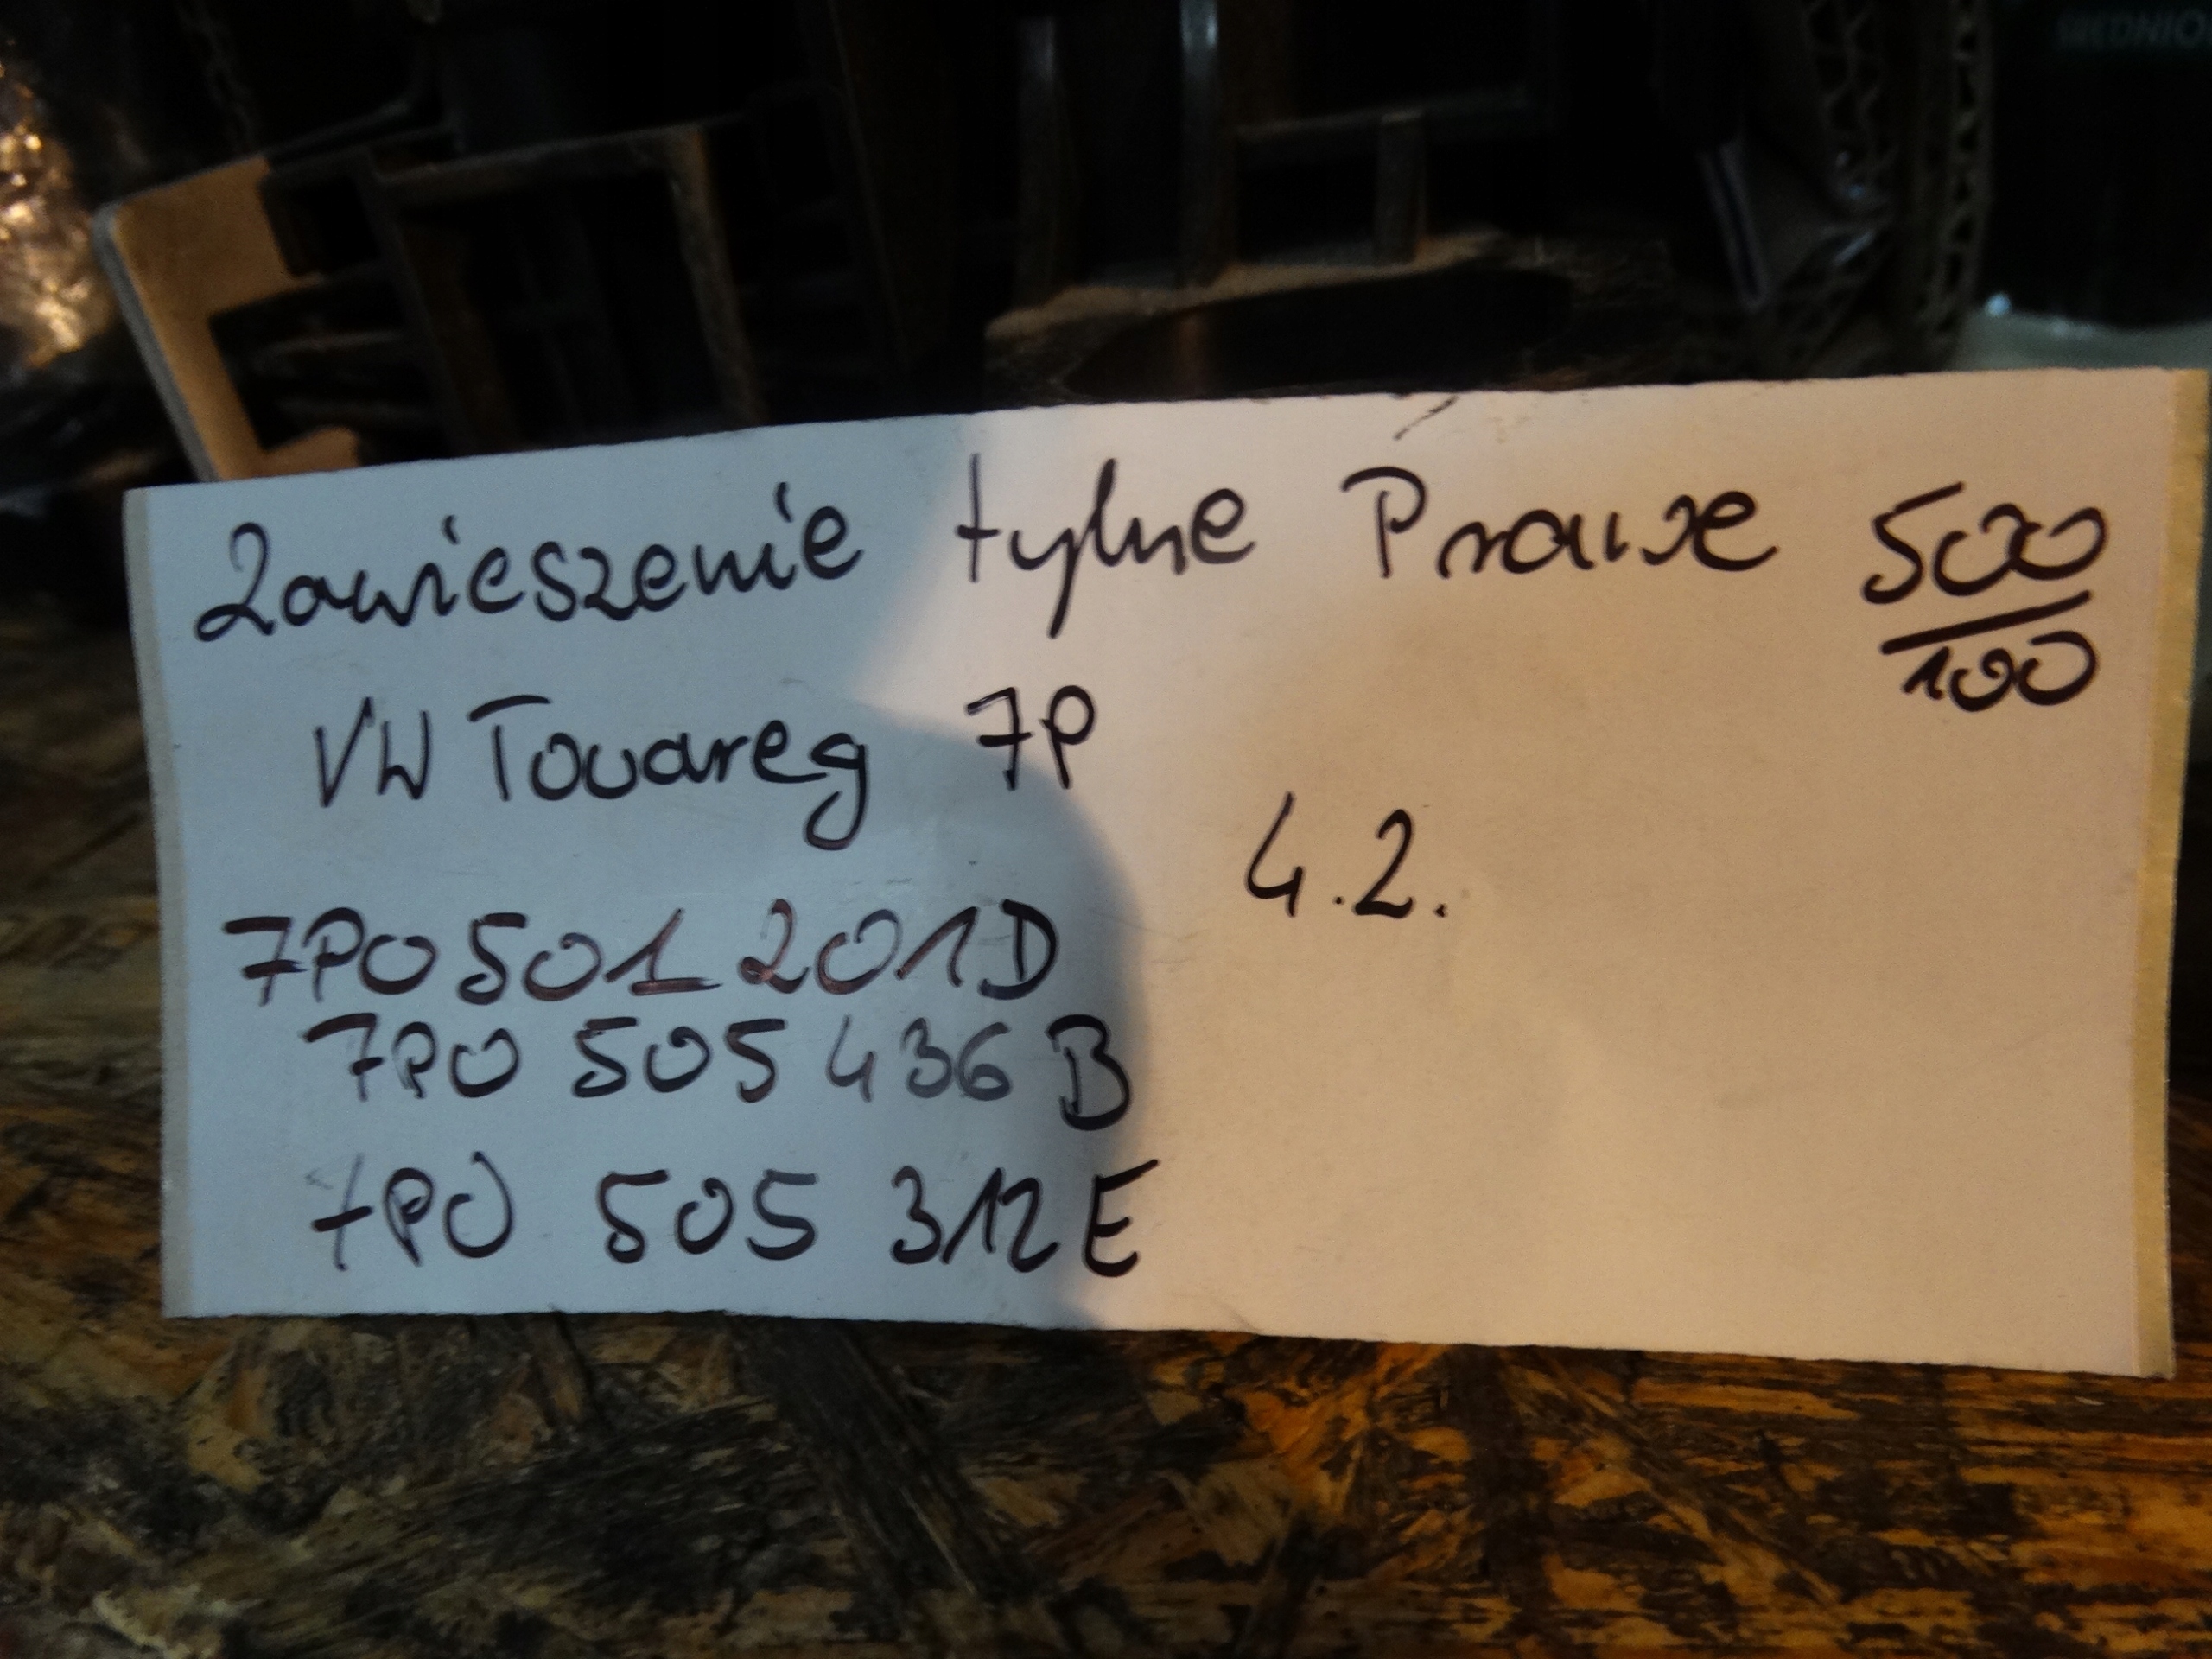 Zawieszenie tylne Prawe 500
100
VW Touareg 7P
4.2.
7P0 501 201 D
7P0 505 436 B
7P0 505 312 E